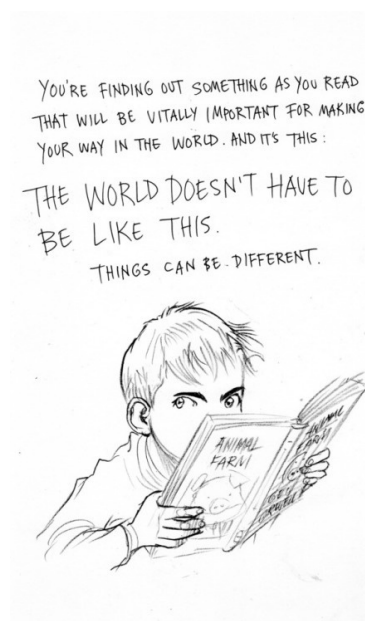 YOU'RE FINDING OUT SOMETHING AS YOU READ
THAT WILL BE VITALLY IMPORTANT FOR MAKING
YOUR WAY IN THE WORLD. AND IT'S THIS:
THE WORLD DOESN'T HAVE TO
BE LIKE THIS.
THINGS CAN BE DIFFERENT.
ANIMAL
FARM
ANIMAL
FARM